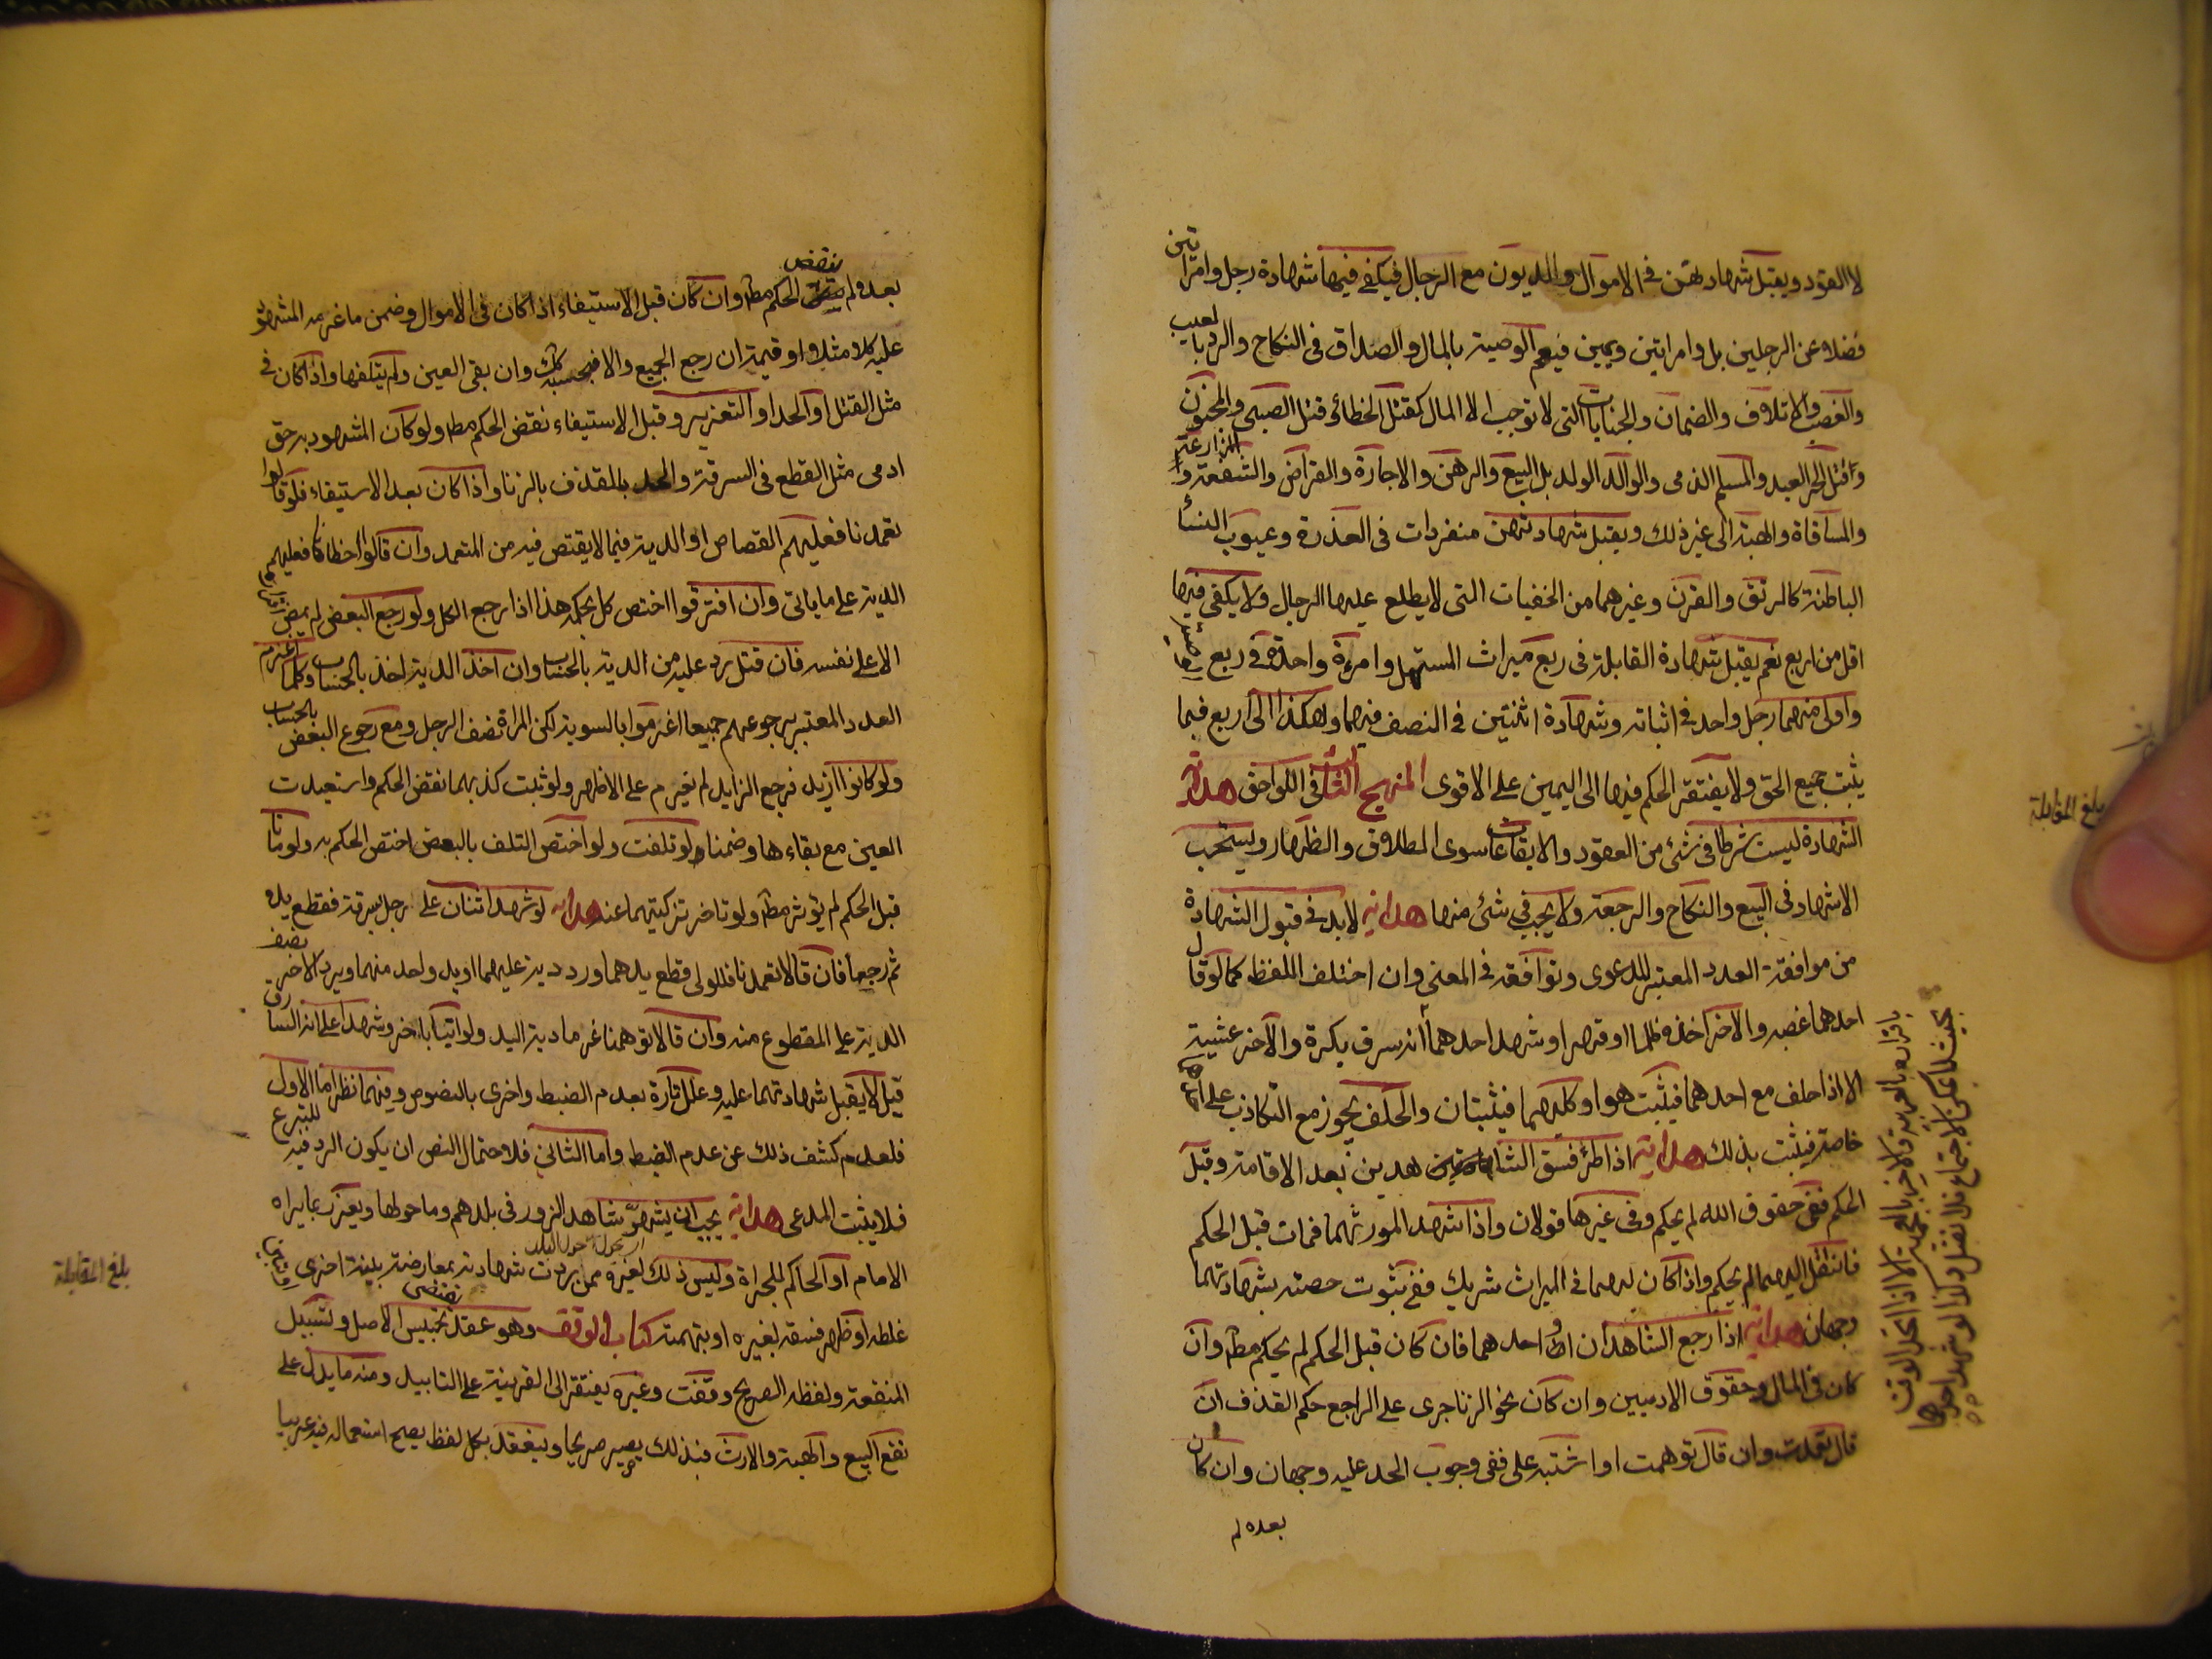 لا القود ويقبل شهادتهن في الاموال والديون مع الرجال فيكفي فيها شهادة رجل وامراتين
فضلا عن الرجلين بل وامراتين ويمين فيعم الوصية بالمال والصداق في النكاح والرد بالعيب
والغصب والاتلاف والضمان والجنايات التي لا توجب الا المال كقتل الخطائ وقتل الصبي والمجنون
وقتل الحر العبد والمسلم الذمي والوالد الولد بل البيع والرهن والاجارة والقراض والشفعة والمزارعة
والمساقاة والهبة الى غير ذلك ويقبل شهادتهن منفردات في العذرة وعيوب النسأ
الباطنة كالرتق والقرن وغيرهما من الخفيات التي لا يطلع عليها الرجال ولا يكفي فيها
اقل من اربع نعم يقبل شهادة القابلة في ربع ميراث المستهل وامرءة واحدة في ربع الوصية
واولى منهما رجل واحد في اثباته وشهادة اثنتين في النصف فيهما وهكذا الى اربع فيما
يثبت جميع الحق ولا يفتقر الحكم فيها الى اليمين على الاقوى المنهج الثالث في اللواحق هداية
الشهادة ليست شرطا في شئ من العقود والايقاعات سوى الطلاق والظهار ويستحب
الاشهاد في البيع والنكاح والرجعة ولا يجب في شئ منها هداية لا بد في قبول الشهادة
من موافقة العدد المعتبر للدعوى وتوافقه في المعنى وان اختلف اللفظ كما لو قال
احدهما غصبه والاخر اخذه ظلما او قهرا وشهد احدهما انه سرق بكرة والآخر عشية
الا اذا حلف مع احدهما فيثبت هو او كليهما فيثبتان والحلف يجوز مع التكاذب على احدهما
خاصة فيثبت بذلك هداية اذا طرئ فسق الشاهدين بعد الاقامة وقبل
الحكم ففي حقوق الله لم يحكم وفي غيرها قولان واذا شهد المورثهما فمات قبل الحكم
فانتقل اليهما لم يحكم واذا كان لهما في الميراث شريك ففي ثبوت حصته بشهادتهما
وجهان هداية اذا رجع الشاهدان او احدهما فان كان قبل الحكم لم يحكم مطا وان
كان في المال وحقوق الادميين وان كان نحو الزنا جرى على الراجع حكم القذف ان
قال تعمدت وان قال توهمت او اشتبه علي ففي وجوب الحد عليه وجهان وان كان
بعده لم
باقراره بالعربية والاخر بالعجمية الا اذا اتحد الوقت
بحيث لا يمكن الاجتماع فلا تغفل وكذا لو شهد احدهما
بلغ المقابلة
بعده ولم ينقض الحكم مطا وان كان قبل الاستيفاء اذا كان في الاموال وضمن ما غرمه المشهود
عليه كلا مثله او قيمة ان رجع الجميع والا فبحسبه وان بقى العين ولم يتلفها واذا كان في
مثل القتل او الحد او التعزير وقبل الاستيفاء نقض الحكم مطا ولو كان المشهود به حق
ادمي مثل القطع في السرقة والحد بالقذف بالزنا واذا كان بعد الاستيفاء فلو قالوا
تعمدنا فعليهم القصاص او الدية فيما لا يقتص فيه من المتعمد وان قالوا اخطانا فعليهم
الدية على ما ياتي وان افترقوا اختص كل بحكمه هذا اذا رجع الكل ولو رجع البعض لم يمض اقراره
الا على نفسه فان قتل يرد عليه من الدية بالحساب وان اخذ الدية اخذ بالحساب وكلما اغترم
العدد المعتبر برجوعهم جميعا اغرموا بالسوية لكن المراة نصف الرجل ومع رجوع البعض بالحساب
ولو كانوا ازيد فرجع الزايد لم يغرم على الاظهر ولو ثبت كذبهما نقض الحكم واستعيدت
العين مع بقاءها وضمنا لو تلفت ولو اختص التلف بالبعض اختص الحكم به ولو ماتا
قبل الحكم لم يؤثر مطا ولو تاخر تزكيتهما عنه هداية لو شهد اثنان على رجل بسرقة فقطع يده
ثم رجعا فان قالا تعمدنا فللولي قطع يدهما ورد دية عليهما او يد واحد منهما ويرد الاخر نصف
الدية على المقطوع منه وان قالا توهمنا غرما دية اليد ولو اتيا باخر وشهدا على انه السارق
قيل لا يقبل شهادتهما عليه وعلل تارة بعدم الضبط واخرى بالنصوص وفيهما نظر اما الاول
فلعدم كشف ذلك عن عدم الضبط واما الثاني فلاحتمال النص ان يكون الرد فيه للتبرع
فلا يثبت المدعى هداية يجب ان يشهر شاهد الزور في بلدهم وما حولها ويعزر بما يراه
الامام او الحاكم للجراة وليس ذلك لغيره ممن ردت شهادته بمعارضة بينة اخرى
غلطه او ظهر فسقه لغيره او بتهمته كتاب الوقف وهو عقد يقتضى تحبيس الاصل وتسبيل
المنفعة ولفظه الصريح وقفت وغيره يفتقر الى القرينة على التابيد ومنه ما يدل على
نفع البيع والهبة والارث فبذلك يصير صريحا وينعقد بكل لفظ يصح استعماله فيه عربيا
بلغ المقابلة